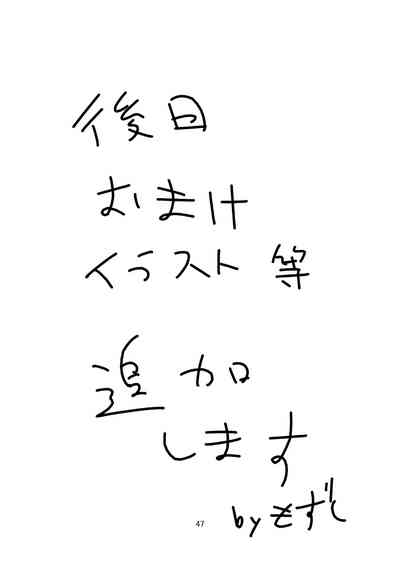 後日
おまけ
イラスト 等
追加
します
by もずじ
47